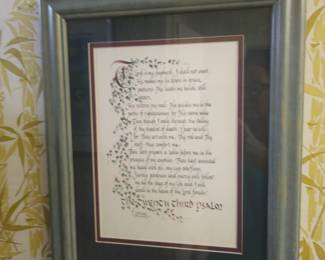 The
Lord is my shepherd; I shall not want
He makes me lie down in green
pastures. He leads me beside still
waters.
He restores my soul. He guides me in the
paths of righteousness for His name sake
Even though I walk through the valley
of the shadow of death, I fear no evil,
for Thou art with me; Thy rod and Thy
staff, they comfort me.
Thou dost prepare a table before me in the
presence of my enemies. Thou hast anointed
my head with oil; my cup overflows.
Surely goodness and mercy will follow
me all the days of my life and I will
dwell in the house of the Lord forever.
The Twenty Third Psalm